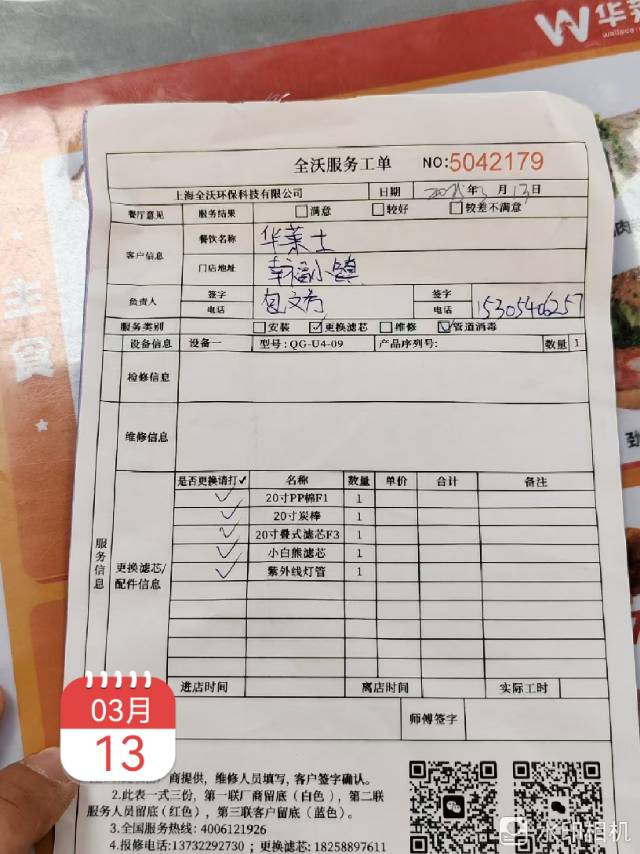 W 华莱
wallace
主食
全沃服务工单 NO:5042179
上海全沃环保科技有限公司 日期 年 月 13日
餐厅意见 服务结果 □满意 □较好 □较差不满意
客户信息 餐饮名称 华莱士
门店地址 幸福小镇
负责人 签字 电话 签字 电话 15305406257
服务类别 □安装 ☑更换滤芯 □维修 ☑管道消毒
设备信息 设备一 型号:QG-U4-09 产品序列号: 数量 1
检修信息
维修信息
服务信息
更换滤芯/配件信息
是否更换请打✓ 名称 数量 单价 合计 备注
✓ 20寸PP棉F1 1
✓ 20寸炭棒 1
✓ 20寸叠式滤芯F3 1
✓ 小白熊滤芯 1
✓ 紫外线灯管 1
进店时间 离店时间 实际工时
师傅签字
03月
13
商提供，维修人员填写，客户签字确认。
2.此表一式三份，第一联厂商留底(白色)，第二联
服务人员留底(红色)，第三联客户留底(蓝色)。
3.全国服务热线: 4006121926
4.报修电话:13732292730 ；更换滤芯: 18258897611
水印相机